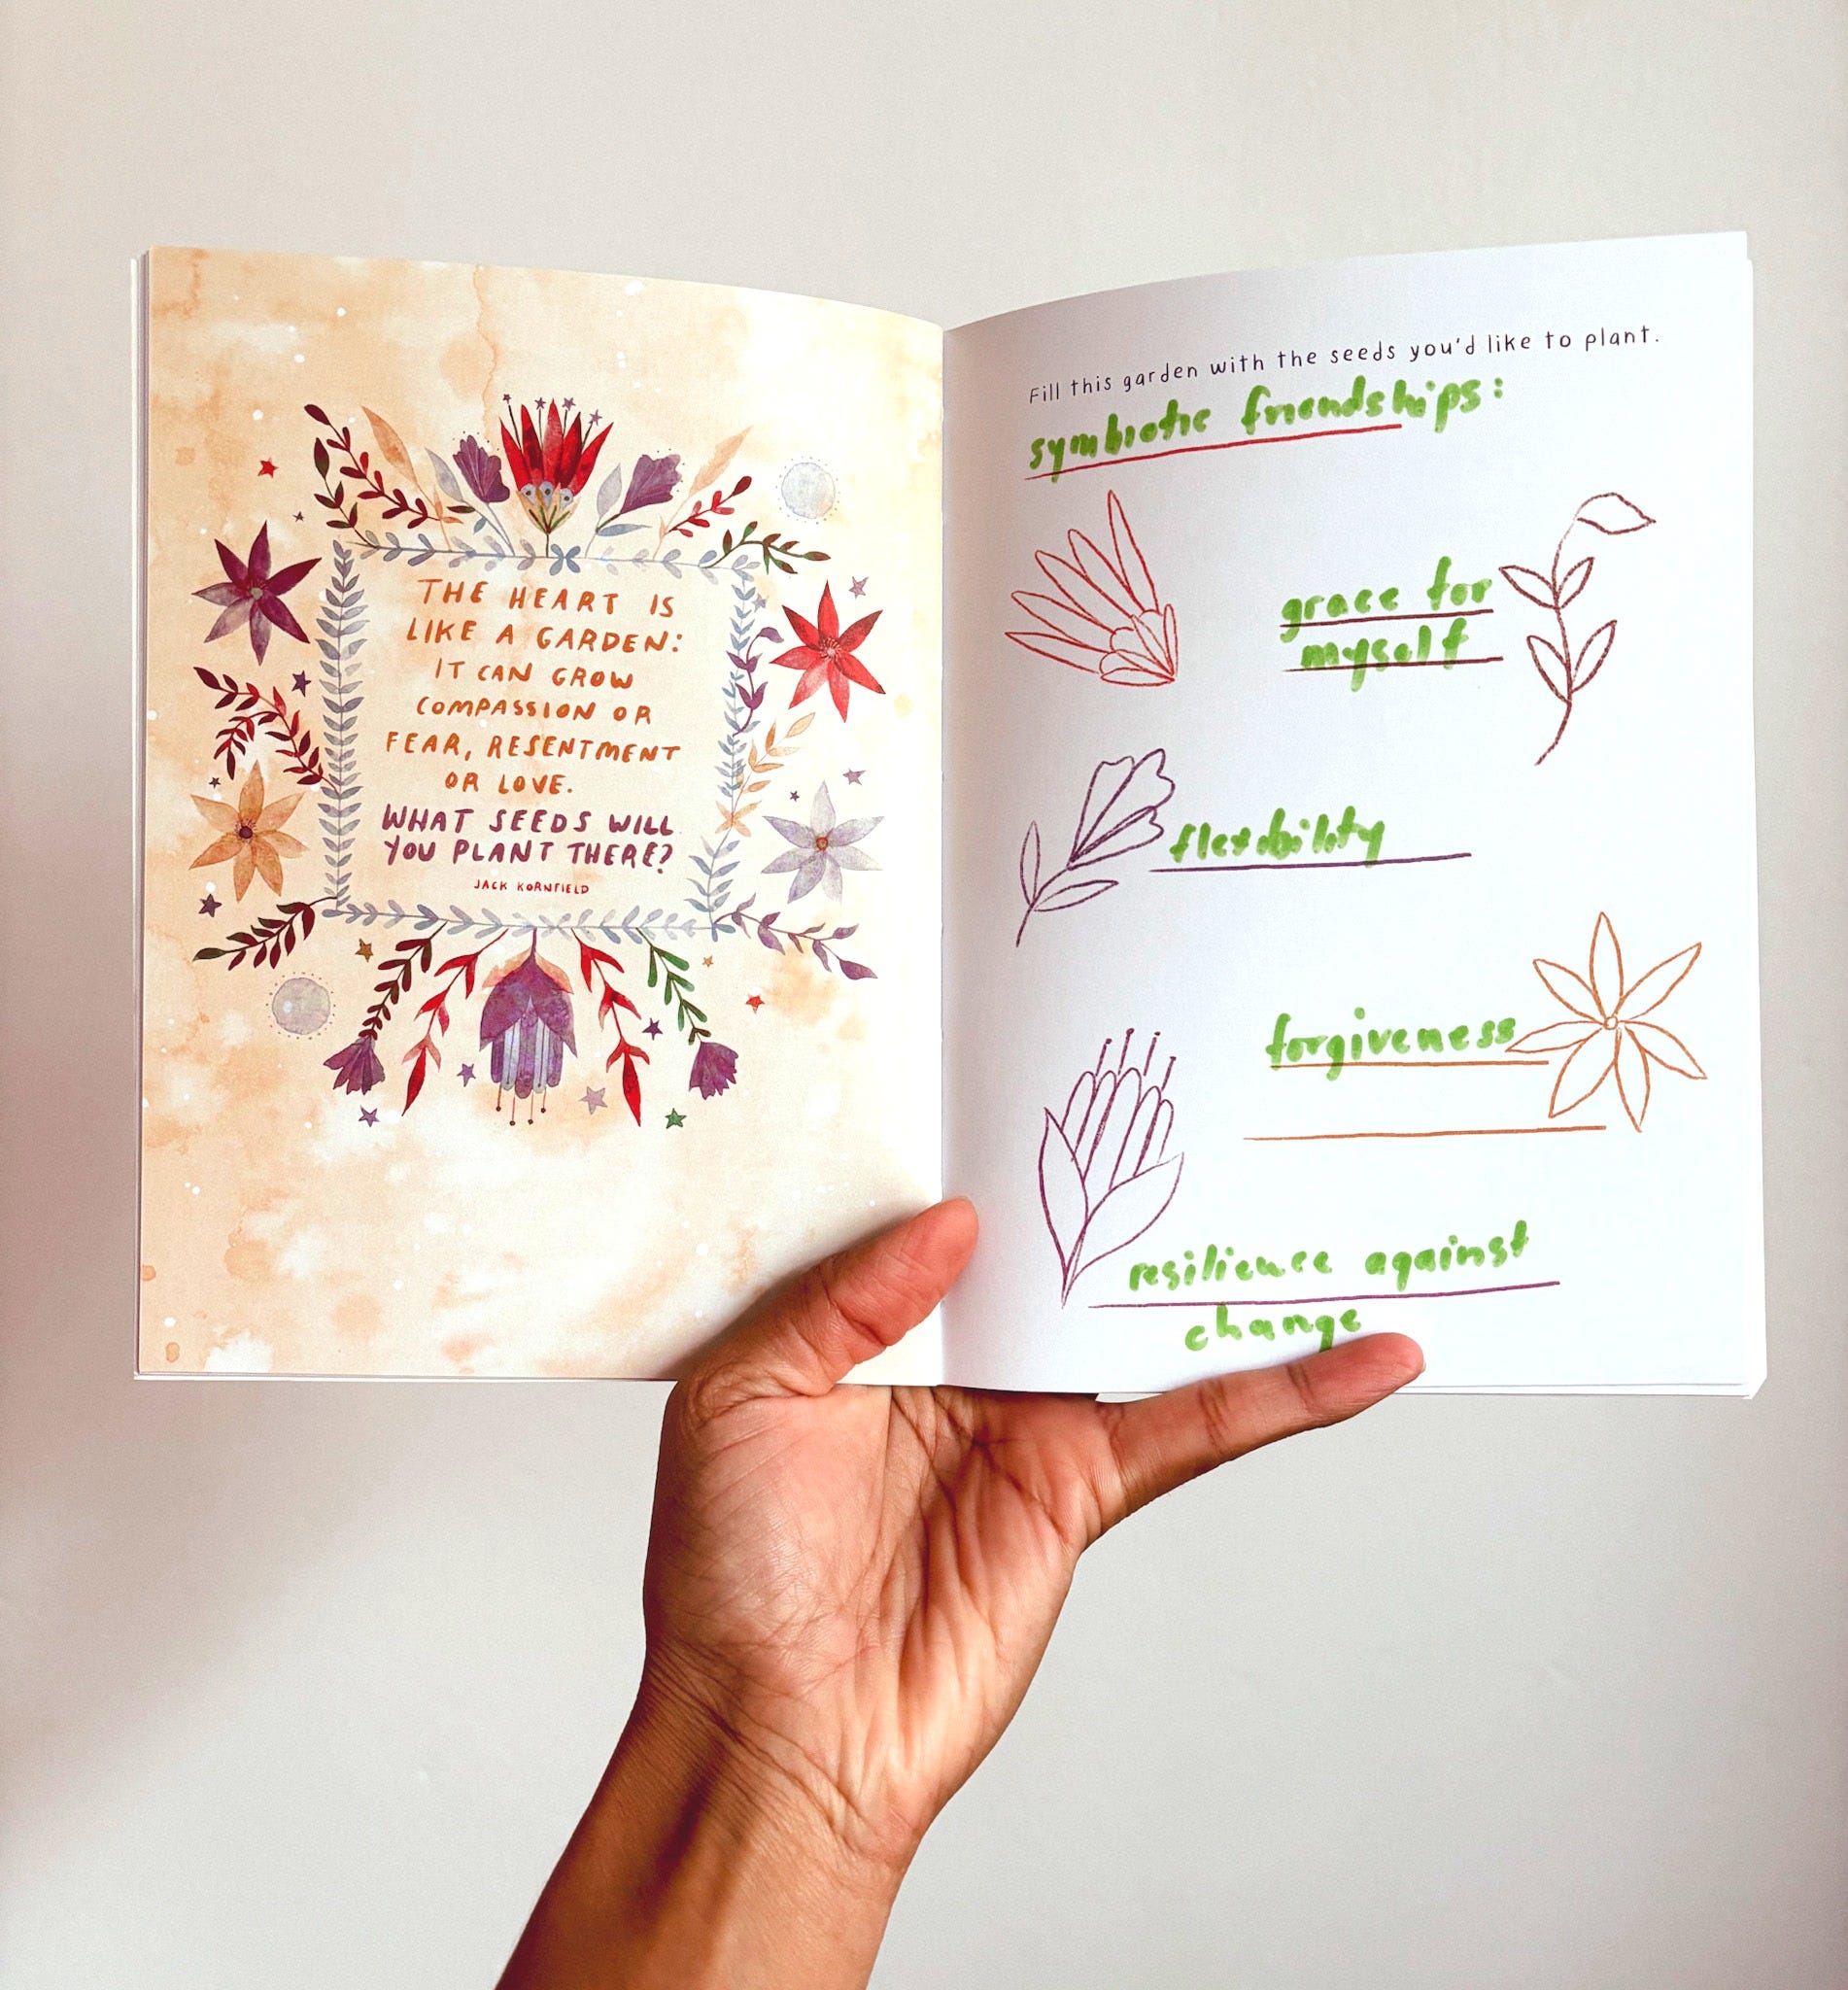 THE HEART IS
LIKE A GARDEN:
IT CAN GROW
COMPASSION OR
FEAR, RESENTMENT
OR LOVE.
WHAT SEEDS WILL
YOU PLANT THERE?
JACK KORNFIELD
Fill this garden with the seeds you'd like to plant.
symbiotic friendships:
grace for
myself
flexibility
forgiveness
resilience against
change